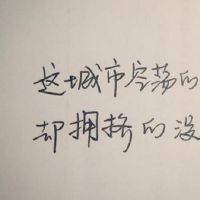 这城市空荡的
却拥挤的没